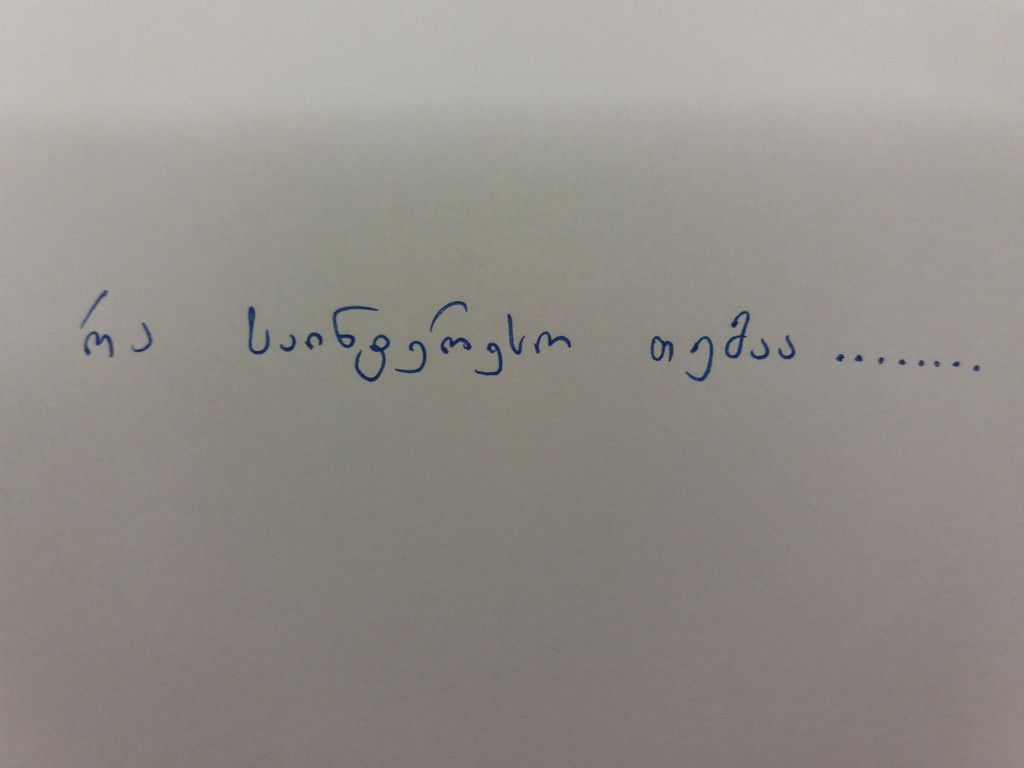 რა საინტერესო თემაა ........